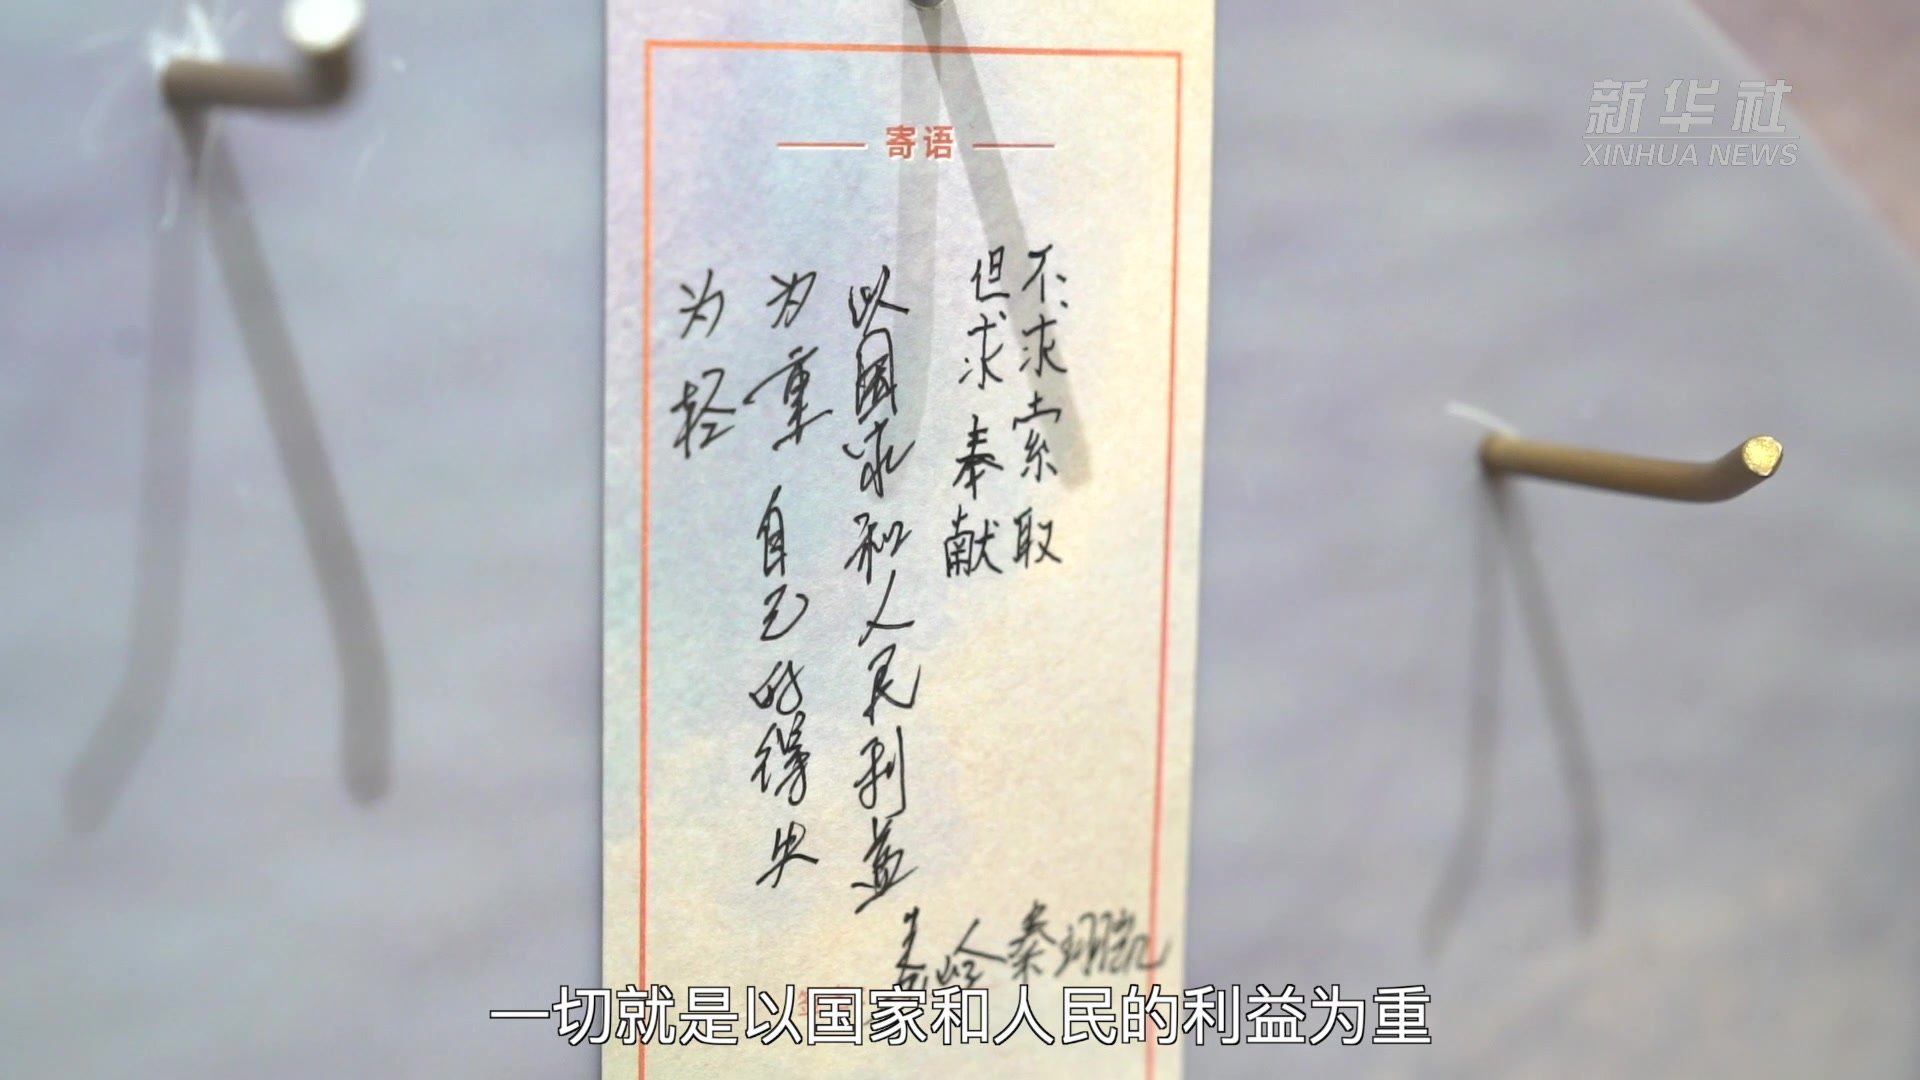 新华社
XINHUA NEWS
寄语
不求索取
但求奉献
以国家和人民利益
为重 自己的得失
为轻
一切就是以国家和人民的利益为重